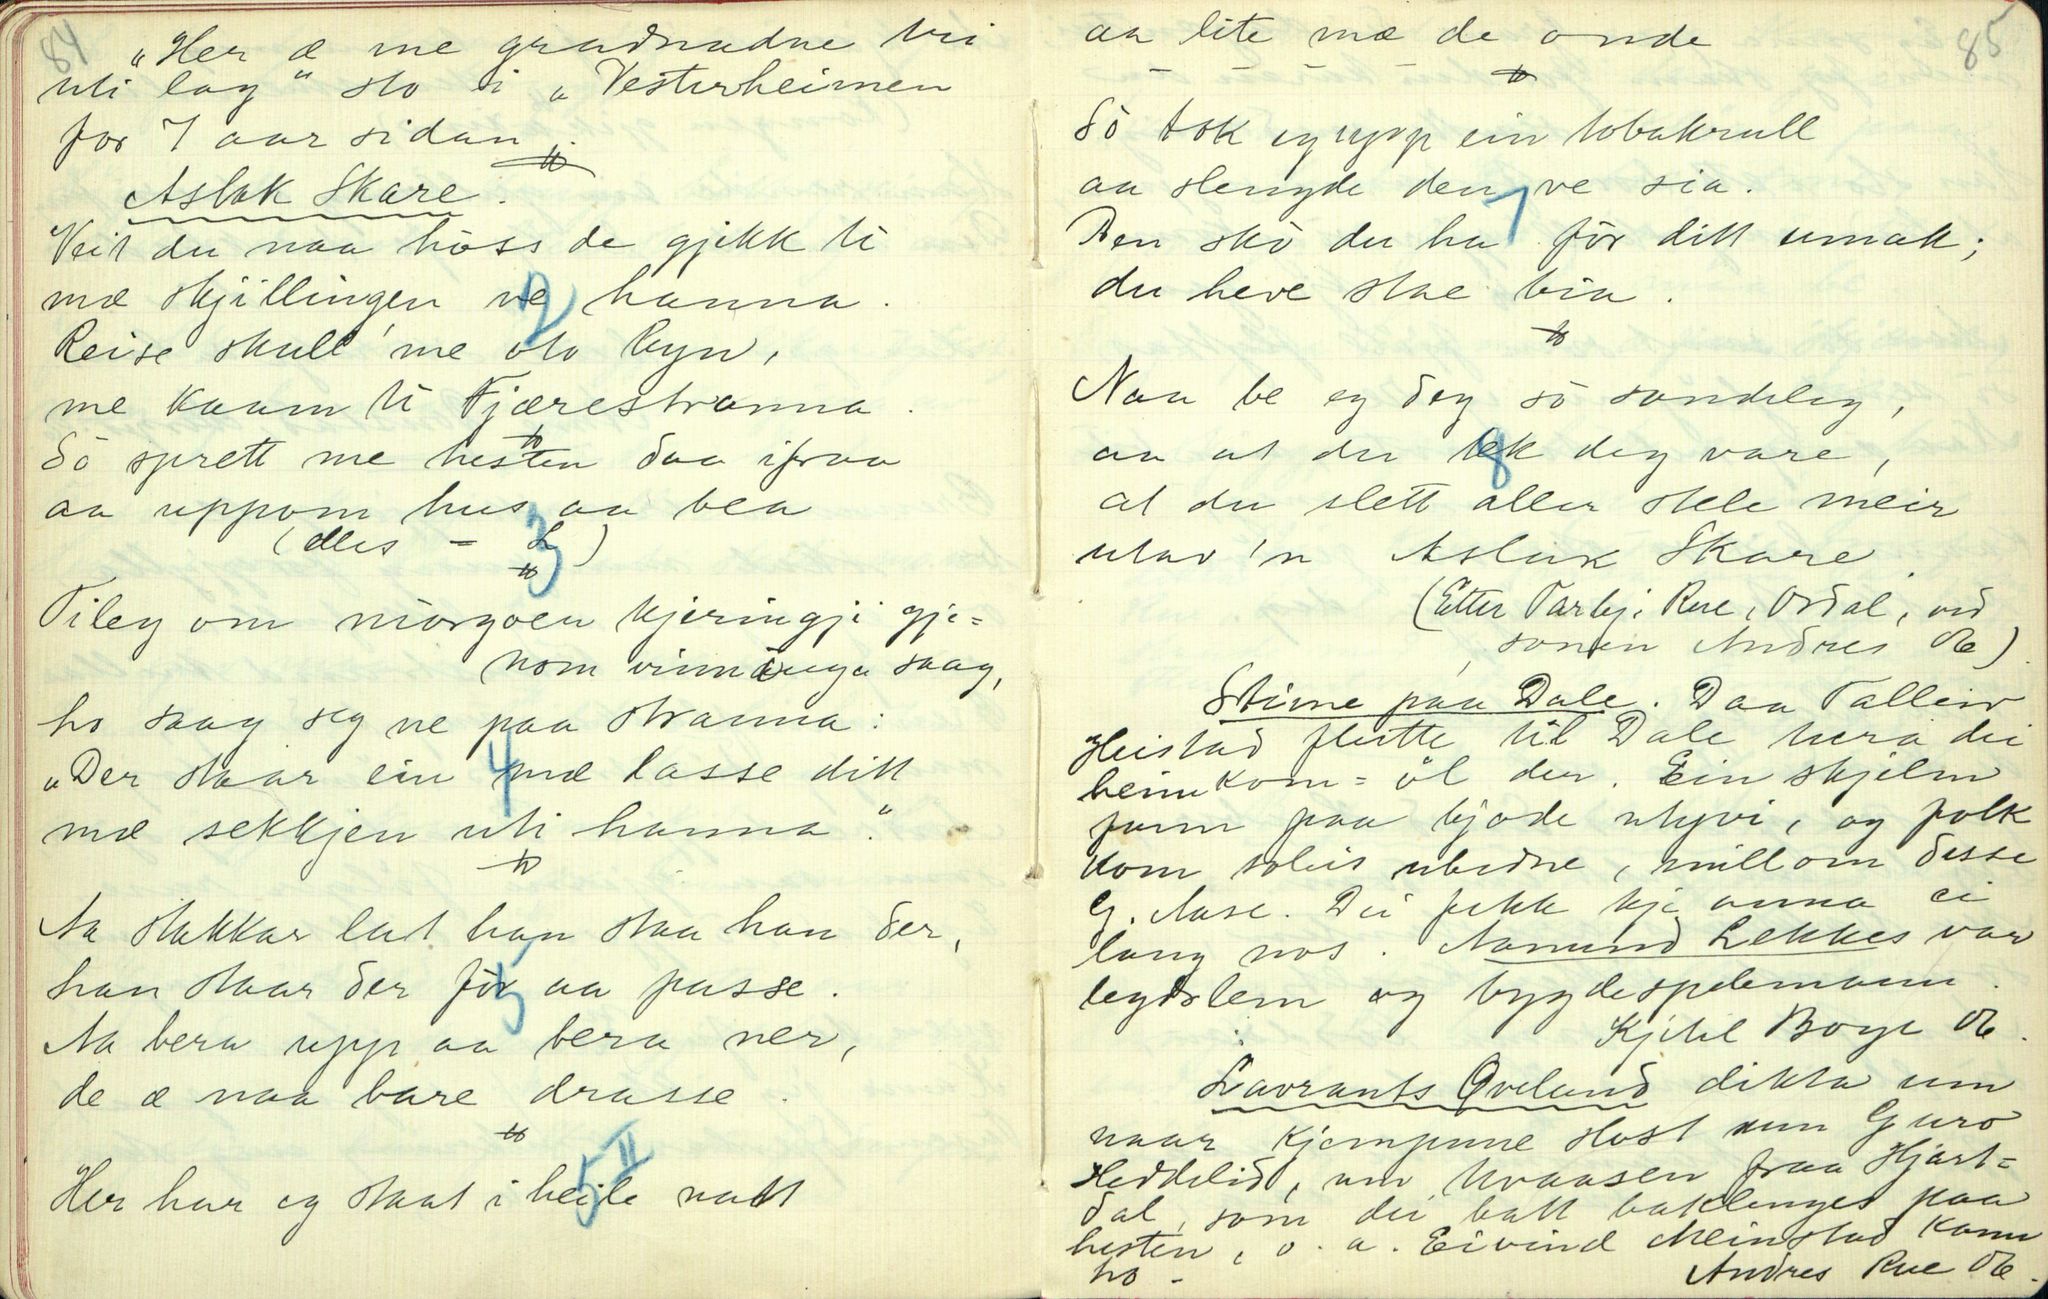 84
"Her æ me gradnadne tri
uti lag" sto i "Vesterheimen
for 7 aar sidan.
Aslak Skare.
Veit du naa hòss de gjikk ti
mæ skjillingen ve hanna.
2
Reise skull' me oto byn,
me kaam ti Fjærestranna.
Sò sprett me hesten daa ifraa
aa uppom hus aa bea
(elles - L)
3
Tileg om mórgoen kjeringji gje=
nom vinnauga saag,
ho saag seg ne paa stranna:
"Der staar ein mæ lasse ditt
4
mæ sekkjen uti hanna."
Aa stakkar lat han staa han der,
han staar der fòr aa passe.
5
Aa bera upp aa bera ner,
de æ naa bare drasse.
5 II
Her har eg staat i heile natt
85
aa lite mæ de onde
- - - -
Sò tok eg upp ein tobakrull
aa slengde den ve sia.
7
Den skò du ha fòr ditt umak;
du heve stae bia.
Naa be eg deg sò sandeleg,
aa at du tek deg vare,
8
at du slett aller stele meir
utav 'n Aslak Skare.
(Etter Tarbj. Rue, Ordal, ved
sonen Andres Ho)
Stime paa Dale. Daa Talleiv
Heistad flutte til Dale hera dei
heimkom=öl der. Ein skjelm
fann paa bjode utyvi, og folk
kom soleis ubedne, millom desse
G. Aase. Dei fekk kje anna ei
lang nos. Aamund Lekkes var
legdslem og bygdespelemann.
Kjetil Boye Ho.
Lavrants Qveland dikta um
naar kjempune slost um Guro
Heddelid, um Uvaasen fraa Hjart=
dal, som dei batt baklenges paa
hesten, o. a. Eivind Meinstad kann
ho - Andres Rue Ho.